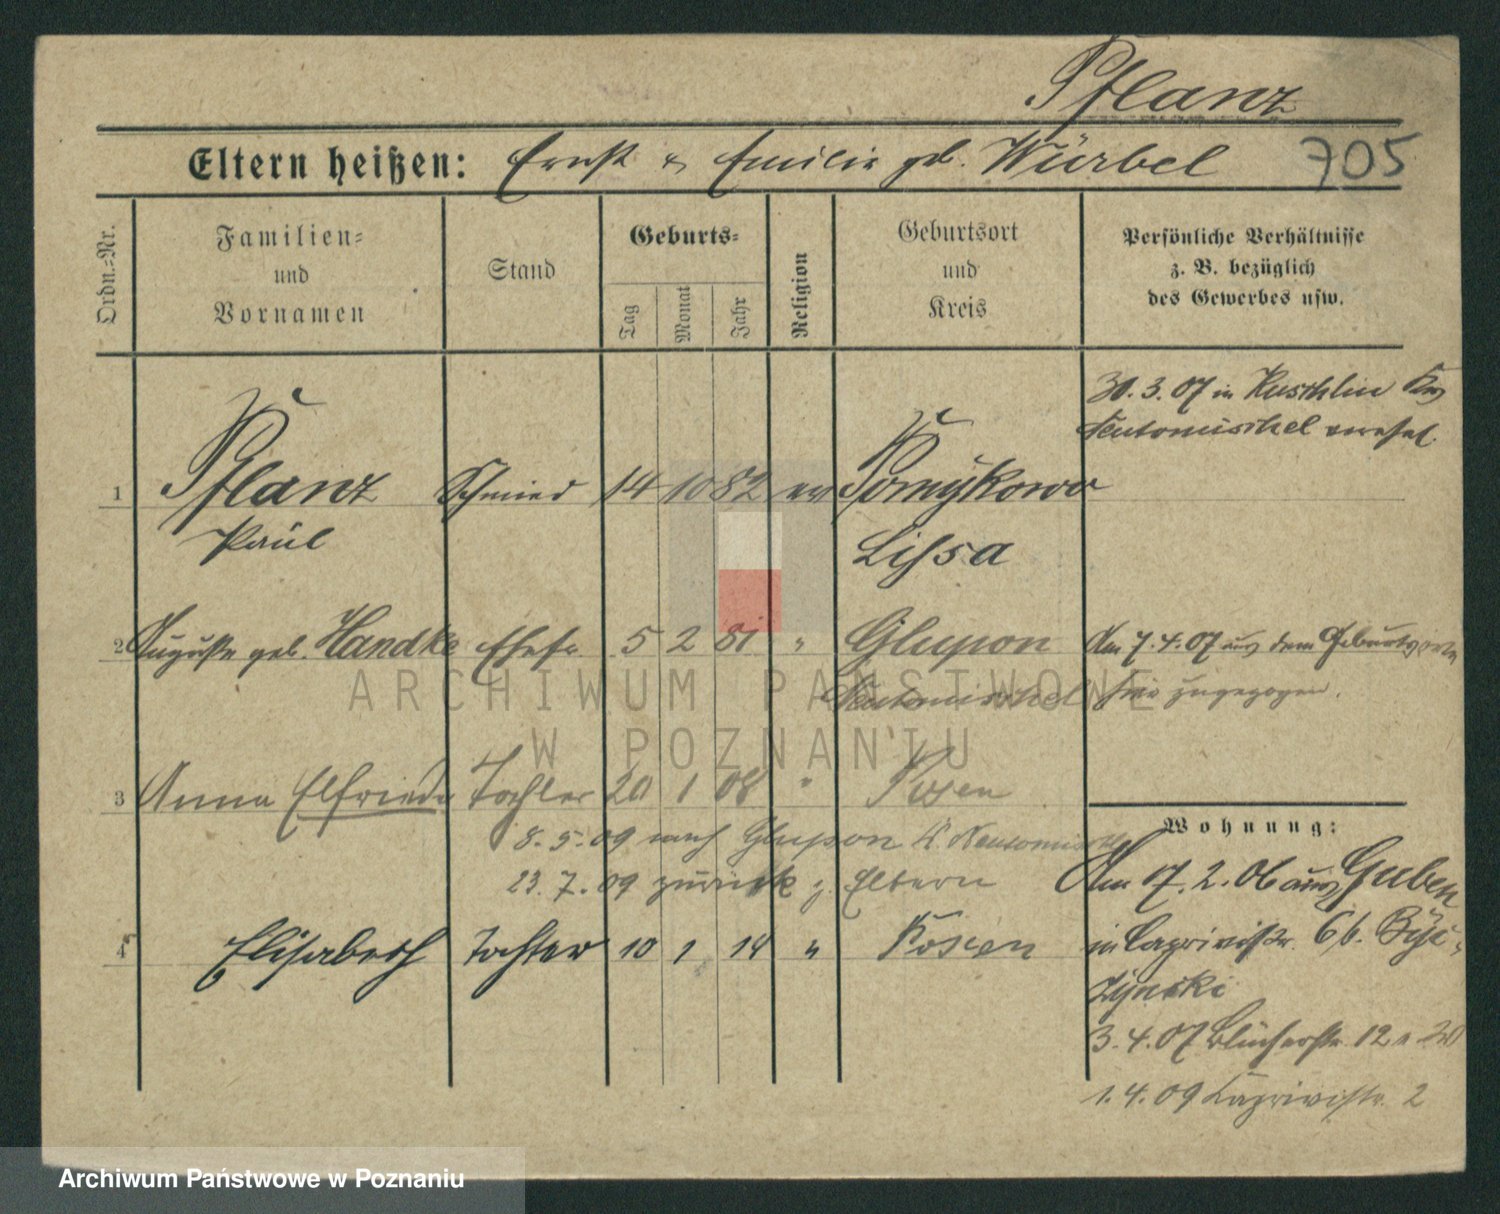 Pflanz
Eltern heißen: Ernst & Emilie geb. Würbel 705
Ordn.-Nr.
Familien- und Vornamen
Stand
Geburts-
Tag
Monat
Jahr
Religion
Geburtsort und Kreis
Persönliche Verhältnisse
z. B. bezüglich
des Gewerbes usw.
30. 3. 07 in Kuschlin
Neutomischel verehel.
1 Pflanz Schmied 14 10 82 ev Pomykowo
Paul Lissa
2 Auguste geb. Handke Ehefr. 5 2 81 " Glupon
Am 7. 4. 07 aus dem Geburtsorte
Neutomischel hier zugezogen.
ARCHIWUM PAŃSTWOWE
W POZNANIU
3 Anna Elfriede Tochter 20 1 08 " Posen
8. 5. 09 nach Glupon K. Neutomischel
23. 7. 09 zurück z. Eltern
4 Elisabeth Tochter 10 1 14 " Posen
Wohnung:
Am 17. 2. 06 aus Guben
in Caprivistr. 6b.
3. 4. 07 Blücherstr. 12
1. 4. 09 Kaprivistr. 2
Archiwum Państwowe w Poznaniu